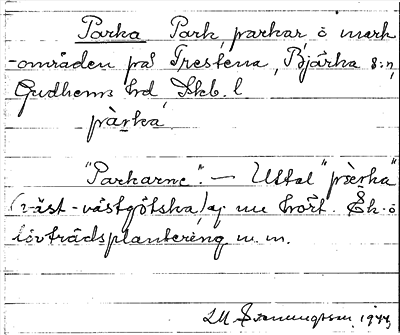 Parka Park, parkar, ö mark
-områden på Trestena, Bjärka s:n,
Gudhems hd Skb. l
pàrka
"Parkarne". — Uttal "pàrka"
(väst-västgötska) ej nu hört. Ek- o
lövträdsplantering m. m.
1944